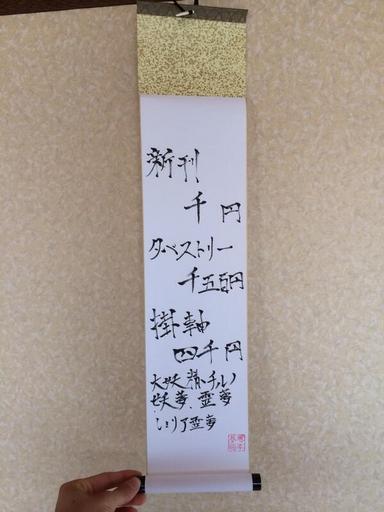 新刊
千円
タペストリー
千五百円
掛軸
四千円
大妖精・チルノ
妖夢、霊夢